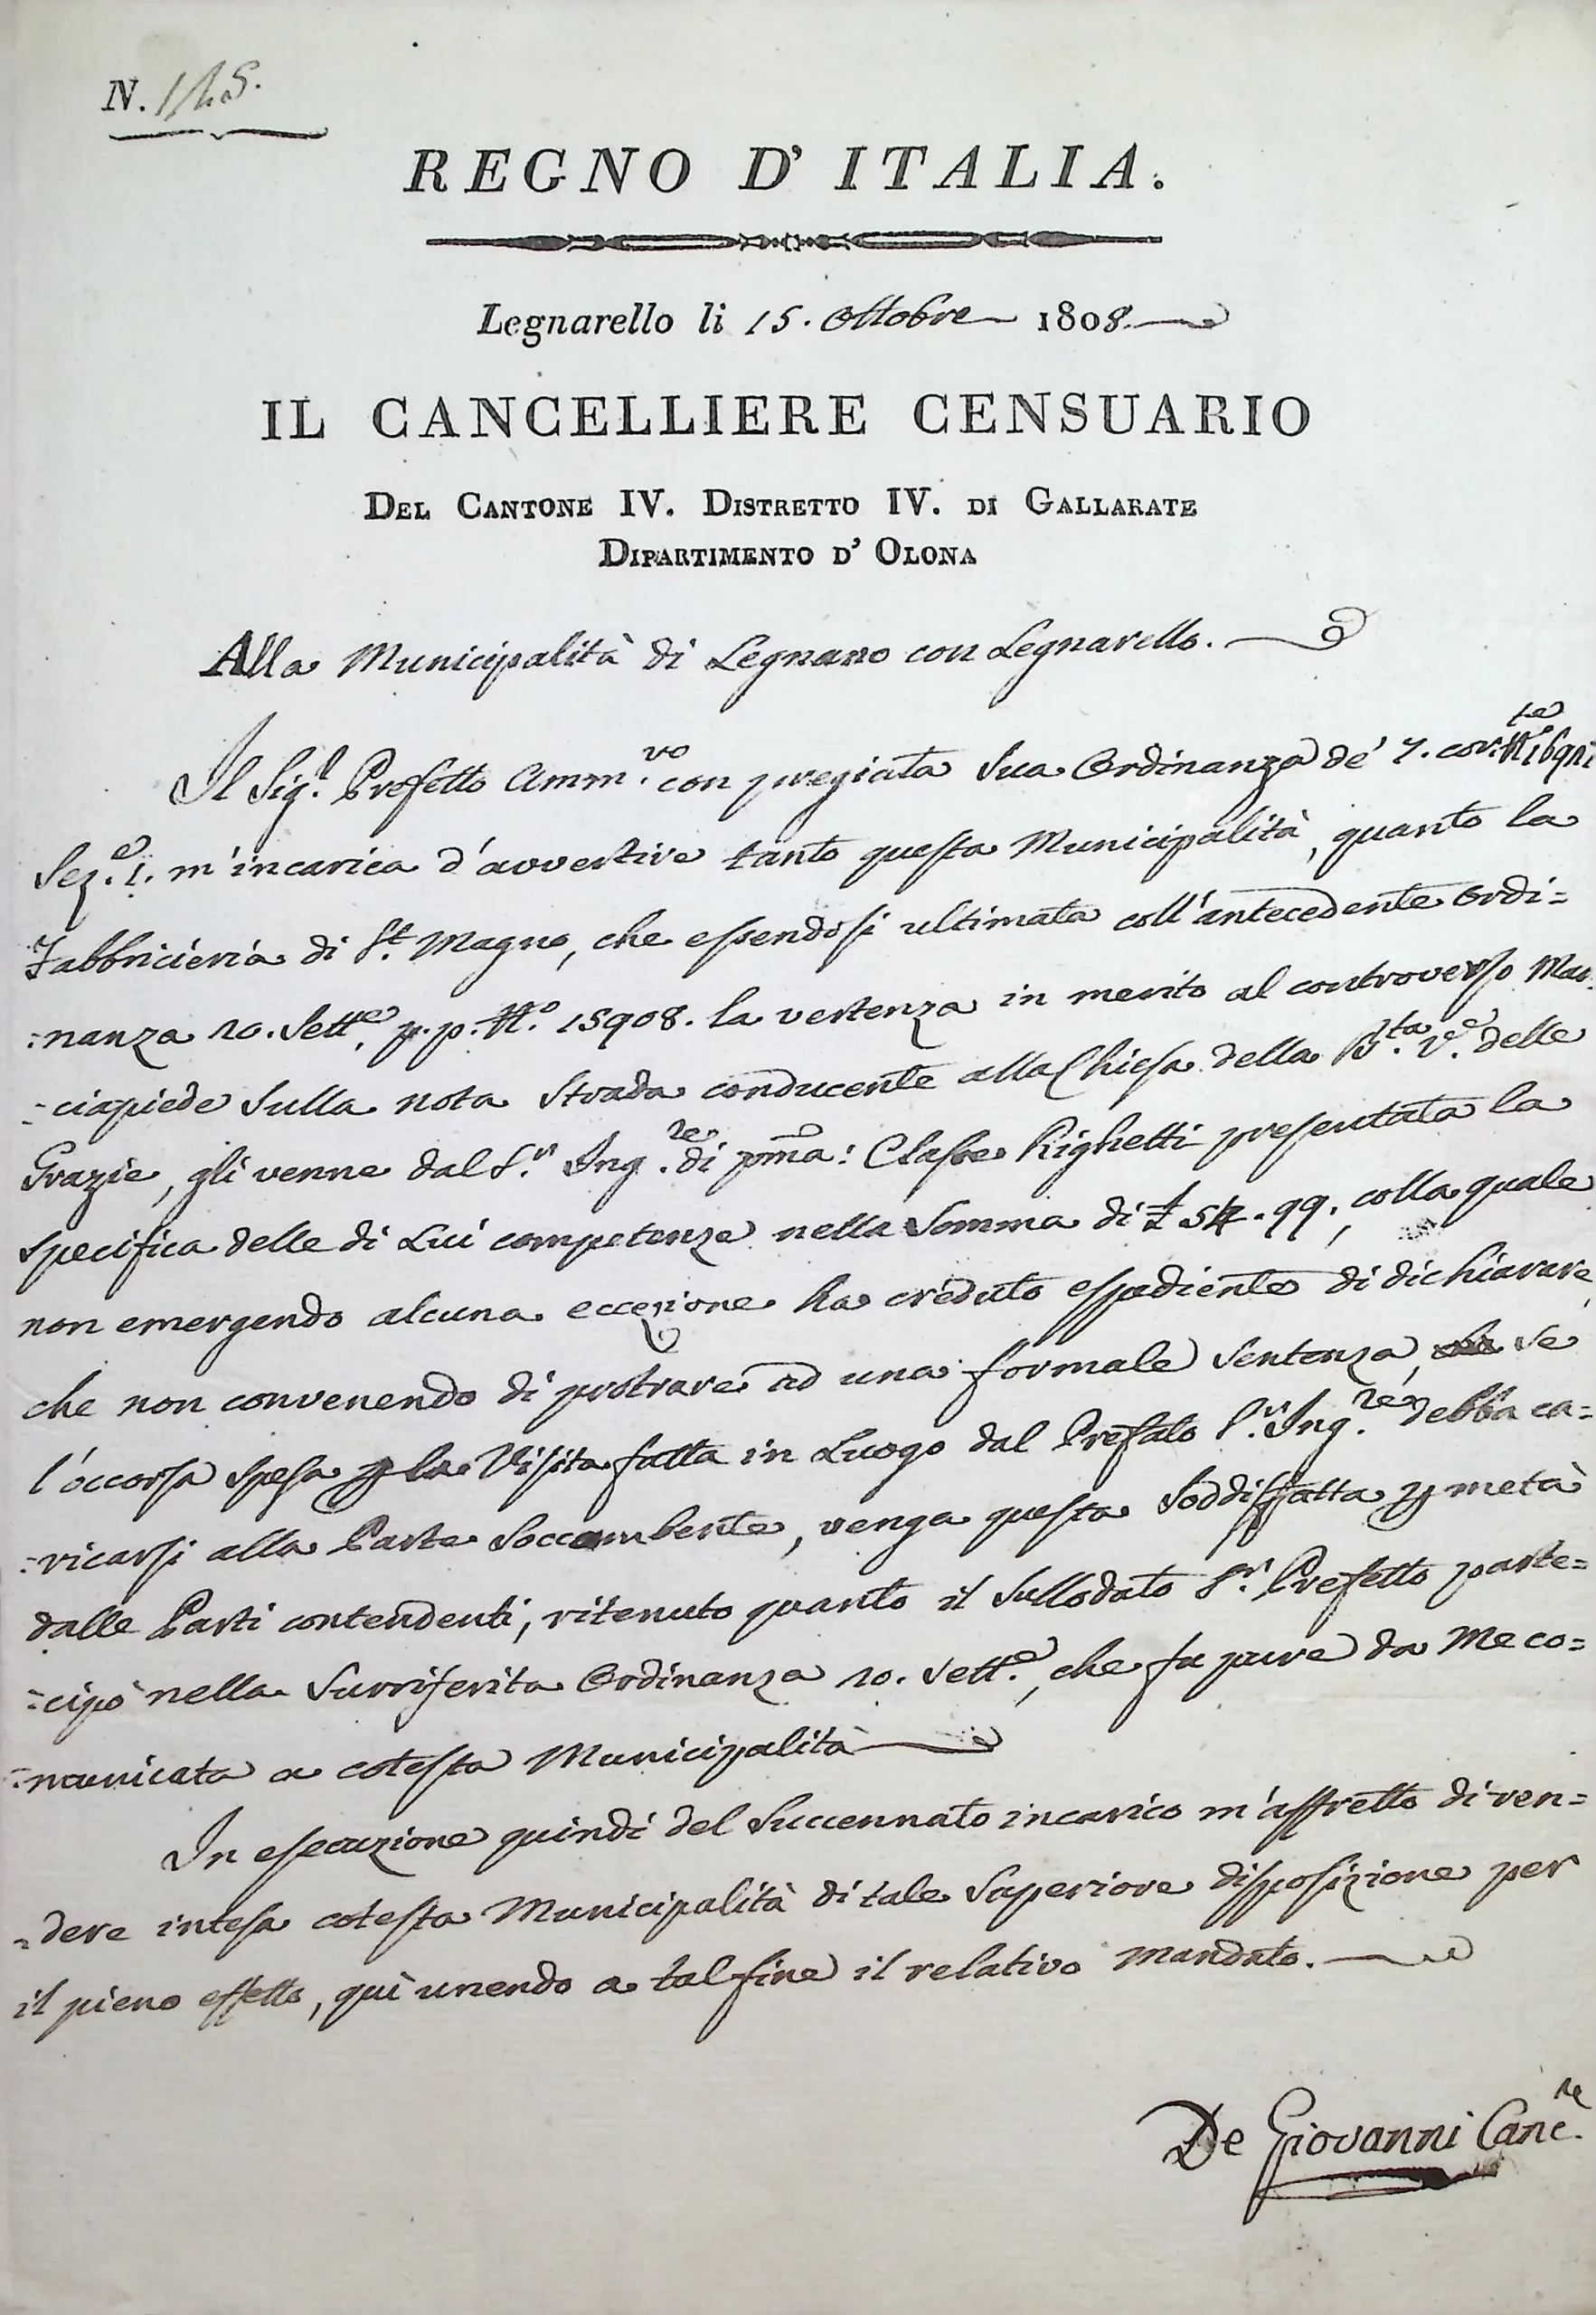 N. 145.
REGNO D' ITALIA.
Legnarello li 15. Ottobre 1808.
IL CANCELLIERE CENSUARIO
DEL CANTONE IV. DISTRETTO IV. DI GALLARATE
DIPARTIMENTO D' OLONA
Alla Municipalità di Legnano con Legnarello.
Il Sig.r Prefetto Amm.vo con pregiata Sua Ordinanza de' 7. corr.te
Sez.e I. m'incarica d'avvertire tanto questa Municipalità, quanto la
Fabbricieria di S.t Magno, che essendosi ultimata coll'antecedente Ordi=
=nanza 20. Sett.e p.p. N.o 15908. la vertenza in merito al controverso Mar=
=ciapiede sulla nota Strada conducente alla Chiesa della B.ta V.e delle
Grazie, gli venne dal S.r Ing.re di pma: Classe Righetti presentata la
specifica delle di Lui competenze nella Somma di £ 54.99, colla quale
non emergendo alcuna eccezione ha creduto espediente di dichiarare,
che non convenendo di protrare ad una formale Sentenza, se
l'occorsa spesa p la Visita fatta in Luogo dal Prefato S.r Ing.re debba ca=
=ricarsi alla Parte Soccombente, venga questa Soddisfatta p metà
dalle Parti contendenti, ritenuto quanto il Sullodato S.r Prefetto parte=
=cipò nella Surriferita Ordinanza 20. Sett.e, che fu pure da Me co=
=municata a cotesta Municipalità
In esecuzione quindi del Succennato incarico m'affretto di ren=
=dere intesa cotesta Municipalità di tale Superiore disposizione per
il pieno effetto, quì unendo a tal fine il relativo Mandato.
De Giovanni Canc.re